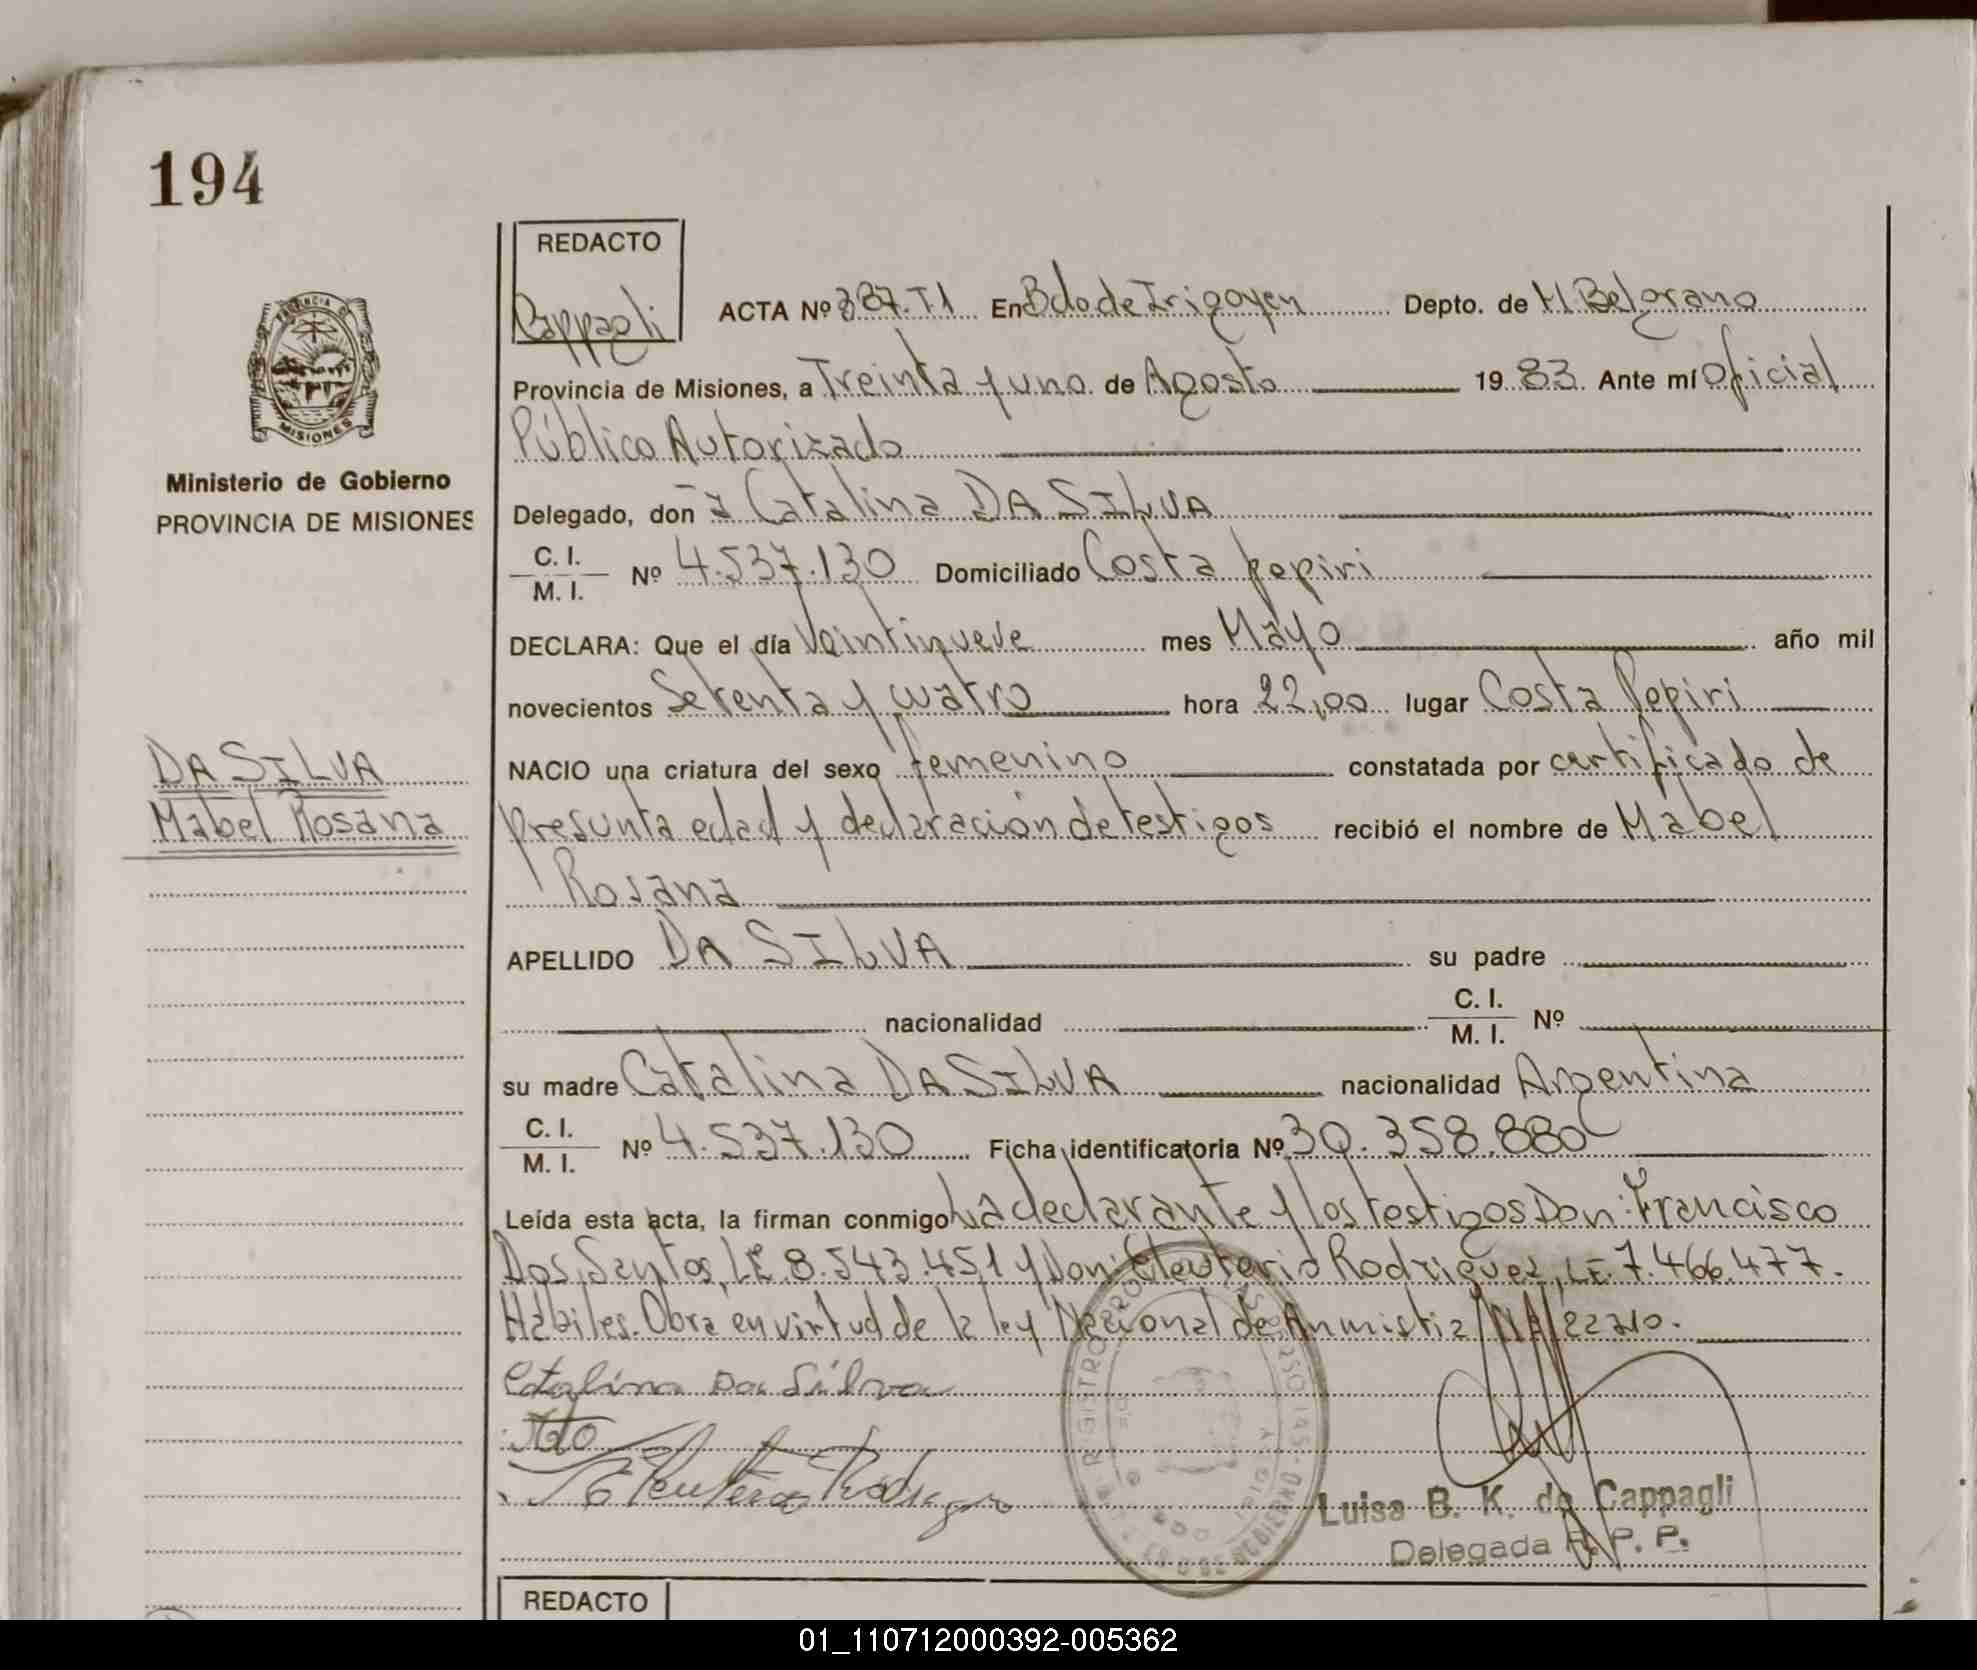 194
REDACTO
Cappagli
PROVINCIA DE
MISIONES
Ministerio de Gobierno
PROVINCIA DE MISIONES
ACTA Nº 387. T1 En Bdo de Irigoyen Depto. de M Belgrano
Provincia de Misiones, a Treinta y uno de Agosto 19 83. Ante mí Oficial
Público Autorizado
Delegado, don ña Catalina DA SILVA
C. I.
M. I. Nº 4.537.130 Domiciliado Costa pepiri
DECLARA: Que el día Veintinueve mes Mayo año mil
novecientos Setenta y cuatro hora 22,00 lugar Costa Pepiri
DA SILVA
Mabel Rosana
NACIO una criatura del sexo femenino constatada por certificado de
presunta edad y declaración de testigos recibió el nombre de Mabel
Rosana
APELLIDO DA SILVA su padre
nacionalidad C. I.
M. I. Nº
su madre Catalina DA SILVA nacionalidad Argentina
C. I.
M. I. Nº 4.537.130 Ficha identificatoria Nº 30.358.880
Leída esta acta, la firman conmigo La declarante y los testigos Don: Francisco
Dos Santos, LE 8.543.451 y Don: Eleuterio Rodriguez, LE. 7.466.477.
Hábiles. Obra en virtud de la ley Nacional de Anmistia Nº 22210.
Catalina Da Silva
Eleuterio Rodriguez
Luisa B. K. de Cappagli
Delegada R. P. P.
REDACTO
01_110712000392-005362